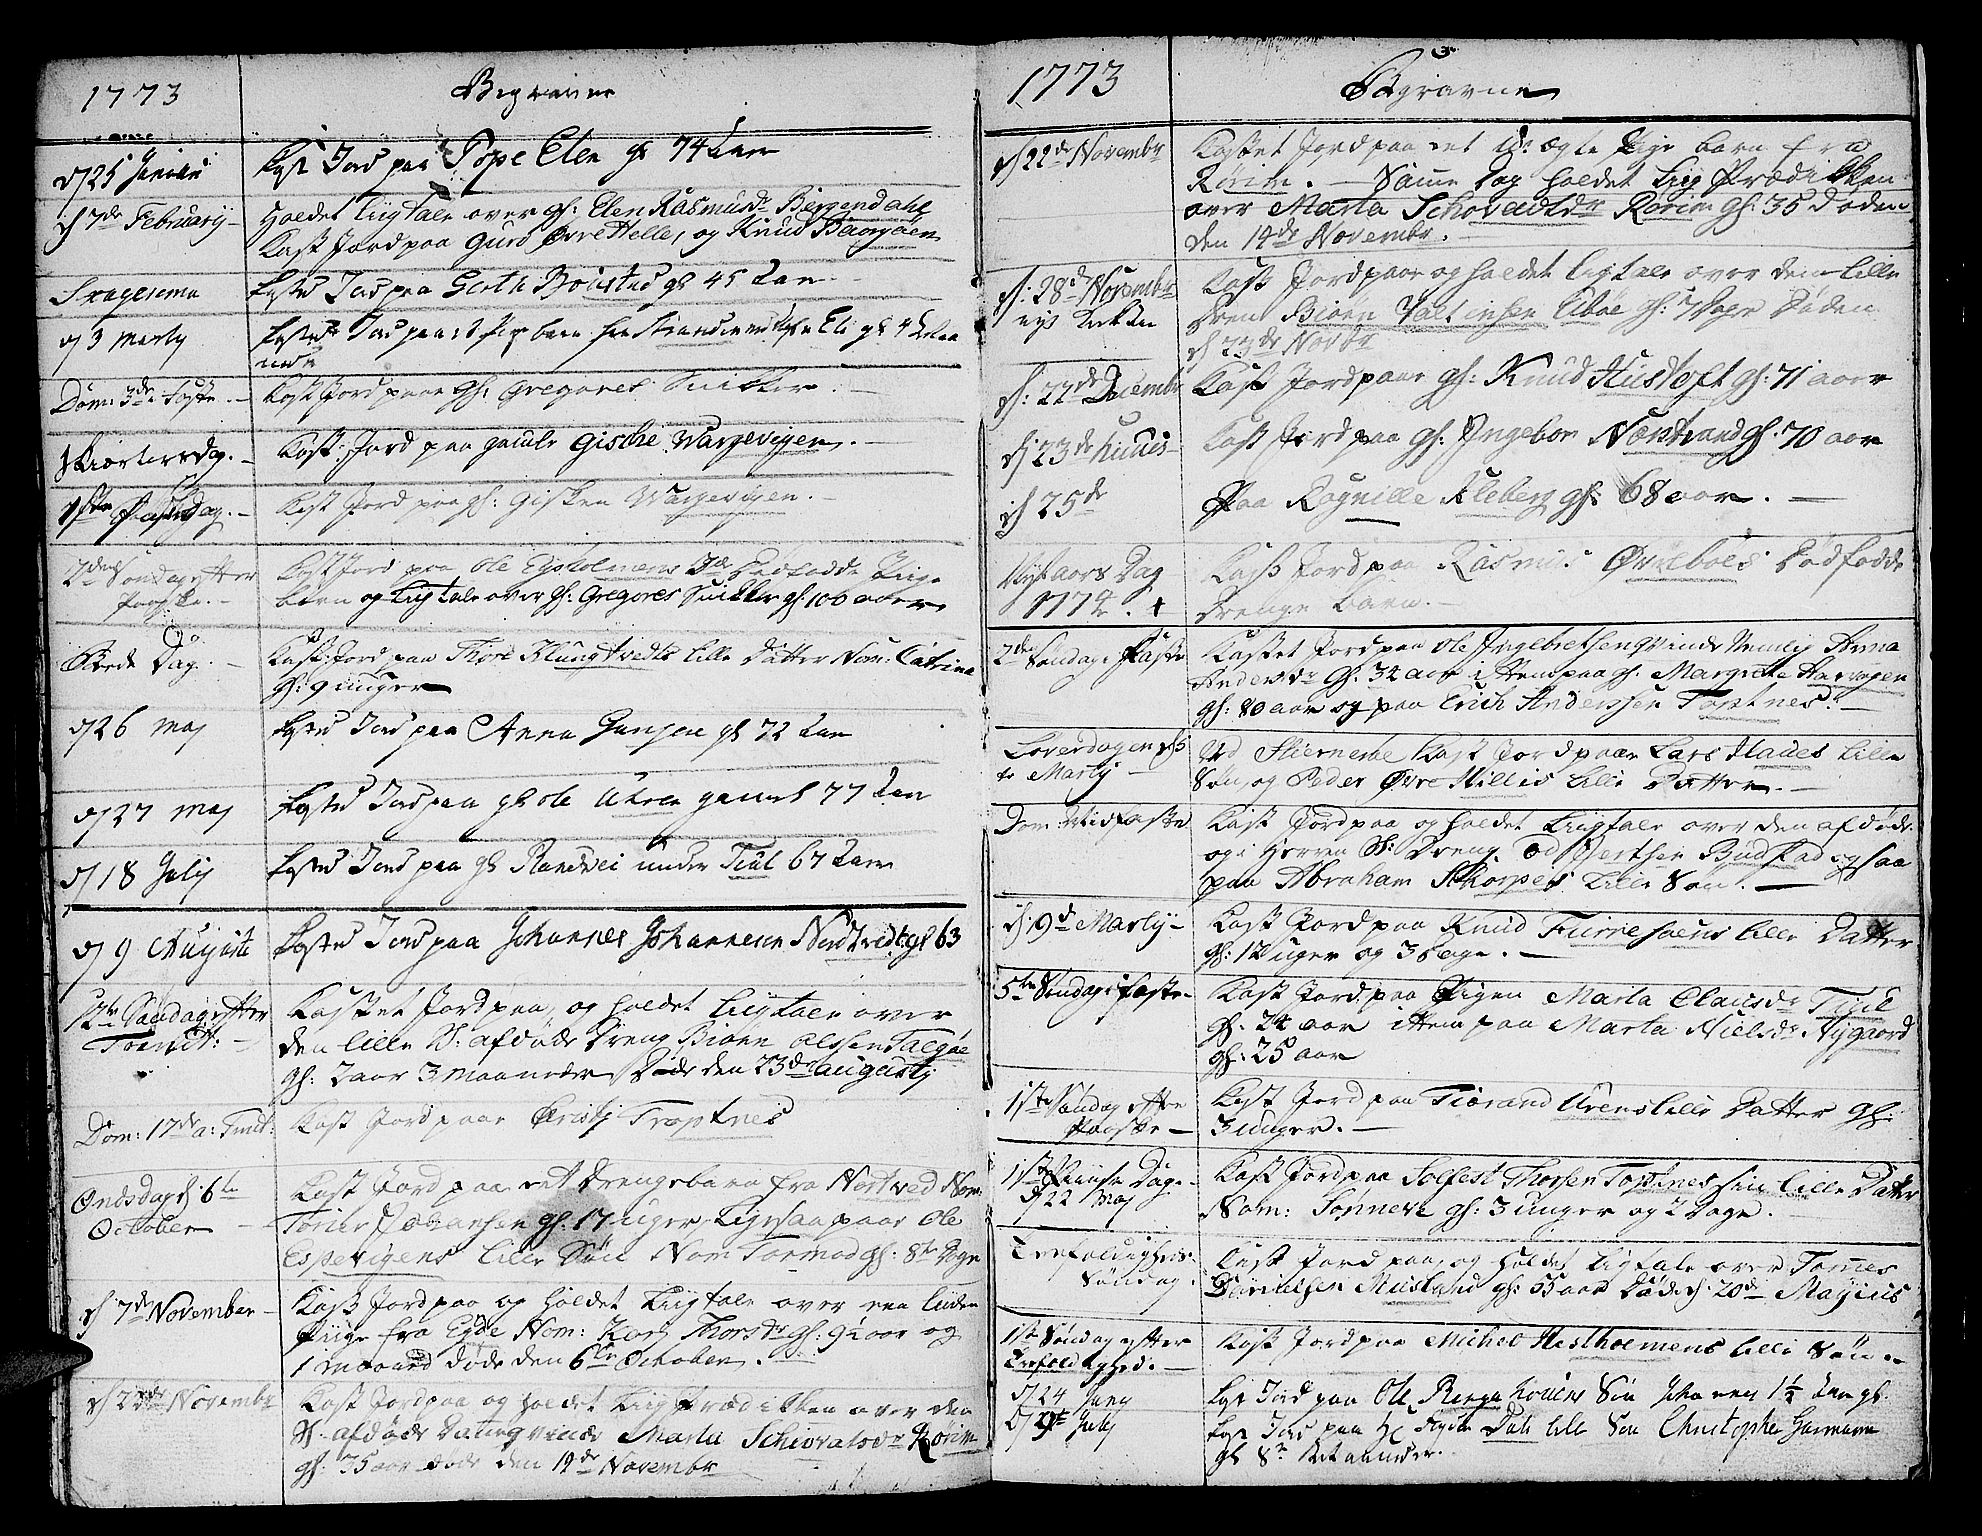 1773 Begravne
d 25 Januari Kast Jord paa Pope Elen gl 74 Aar
d 7de February Holdet Liigtale over gl: Elen Rasmusdr Bergendahl
Kast Jord paa Guro Øvre Helle, og Knud Baarsøen
Kaste Jord paa Seth Bolstad gl 45 Aar
d 3 Martij Kastet Jord paa et pige barn fra Strand Nafn Eli gl
Dom: 3de i Faste. Kast Jord paa gl: Gregores Snikker.
Skiertorsdag. Kast: Jord paa gamle Giske Wargevigen.
1ste Paaskedag. Kast Jord paa gl: Gisken Wargevigen.
2den Søndag efter Paaske. Kast Jord paa Ole Eysholmens Dødfødde Pige
barn og Liigtale over gl: Gregores Snikker gl: 100 aar
Bede Dag. Kast: Jord paa Thore Klungtvedts lille Datter Nom: Catrina
gl: 9 uger
d 26 Maj Kaste Jord paa Anna Hansen gl 72 Aar
d 27 Maj Kaste Jord paa gl Ole Uhren gamel 77 Aar
d 18 July Kaste Jord paa gl Randvei under Tiul 67 Aar
d 9 Augusti Kaste Jord paa Johannes Johannesen Nordtvedt gl 63
12te Søndag efter Trinit: Kastet Jord paa, og holdet Liigtale over
den lille S: afdøde Dreng Biørn Olssen Talgøe
gl: 2 aar 3 maaneder Døde den 23de Augusty
Dom: 17de a: Trinit: Kast Jord paa Cristj Troptnes
Onsdag d 6te October Kast Jord paa et Drengebarn fra Nortved Nom:
Torier Johansen gl: 17 uger. Ligesaa paa Ole
Espevigens lille Søn Nom Tormod gl: 8te Dage
d 7de November Kast Jord paa og holdet Liigtale over een liden
Piige fra Eyde Nom: Kari Thorsdr gl: 9½ aar og
1 maaned døde den 6te October.
d 22de Novembr Kast Jord paa og holdet Liigprædikken over den
S: afdøde Marta Schiovaldsdr Rørim
gl: 35 aar døde den 14de Novembr
1773 Begravne
d 22de Novembr Kastet Jord paa et U: ægte Pige barn fra
Rørim. Samme Dag holdet Liig Prædikken
over Marta Schovaldtdr Rørim gl: 35 Døden
den 14de Novembr.
d: 28de Novembr Kast Jord paa og holdet Liigtale over den lille
Dreng Biørn Valtinsen Eboe gl: 7 Dage Døden
d 23de Novbr
d: 22de Decembr Kast Jord paa gl: Knud Hustoft gl: 71 aar
d 23de hujus Kast Jord paa gl: Ingebor Næstrand gl: 70 aar
d 25de Paa Ragnille Kleberg gl: 68 aar.
Nyt aars Dag 1774. Kast Jord paa Rasmus Øvreboes Dødfødde
Drenge barn.
2de Søndag i Faste Kastet Jord paa Ole Ingebretsen qvinde Nemlig Anna
Andersdr gl: 34 aar ittem paa gl: Margrete Aarvogen
gl: 80 aar og paa Erich Anderssen Toptnes.
Løverdagen d 5te Martij Ved Hierneroe Kast Jord paa Lars Hades lille
Søn, og Peder Øvre Hilles lille Datter.
Dom: Midfaste Kast Jord paa og holdet Liigtale over den afdøde
og i Herren S: Dreng Od Ivertsen Budstad og saa
paa Abraham Skorpes lille Søn.
d: 9d Martij Kast Jord paa Knud Furresoens lille Datter
gl: 12 uger og 3 Dage.
5te Søndag i Faste Kast Jord paa Pigen Marta Clausdr Tiul
gl: 24 aar ittem paa Marta Nielsdr Nygaard
gl: 25 aar
1ste Søndag efter Paaske Kast Jord paa Tiørand Urens lille Datter gl:
3 uger.
1ste Pintse Dag d 22 Maj Kast Jord paa Solfest Thorsen Toptnes sin lille Datter
Nom: Sønneve gl: 3 uger og 2 Dage.
Trefoldigheds Søndag. Kast Jord paa, og holdet Liigtale over Tomes
Danielsen Musland gl: 55 aar Døde d: 20de Majius
1ste Søndag efter Trefoldighed. Kast Jord paa Michel Hestholmens lille Søn.
d 24 Juny Kast Jord paa Ole Bergahouens Søn Johannes 1½ Aar gl:
July Kast Jord paa Dals lille Søn Christopher Garmann
gl 8te